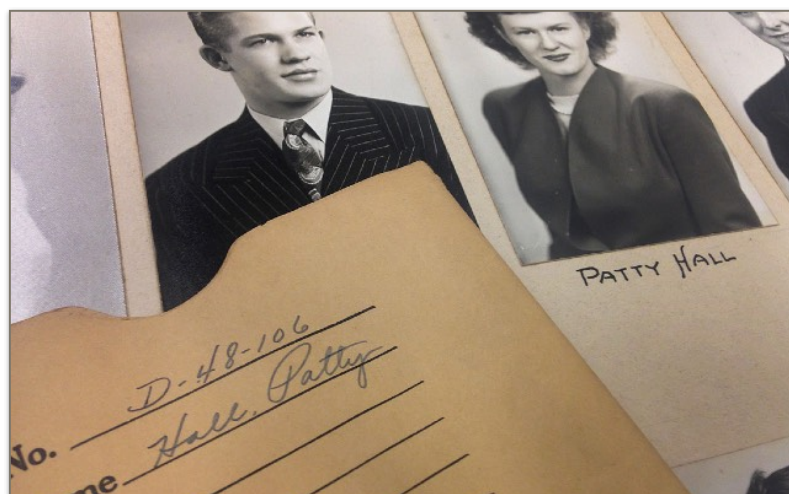 PATTY HALL
No. D-48-106
me Hall, Patty